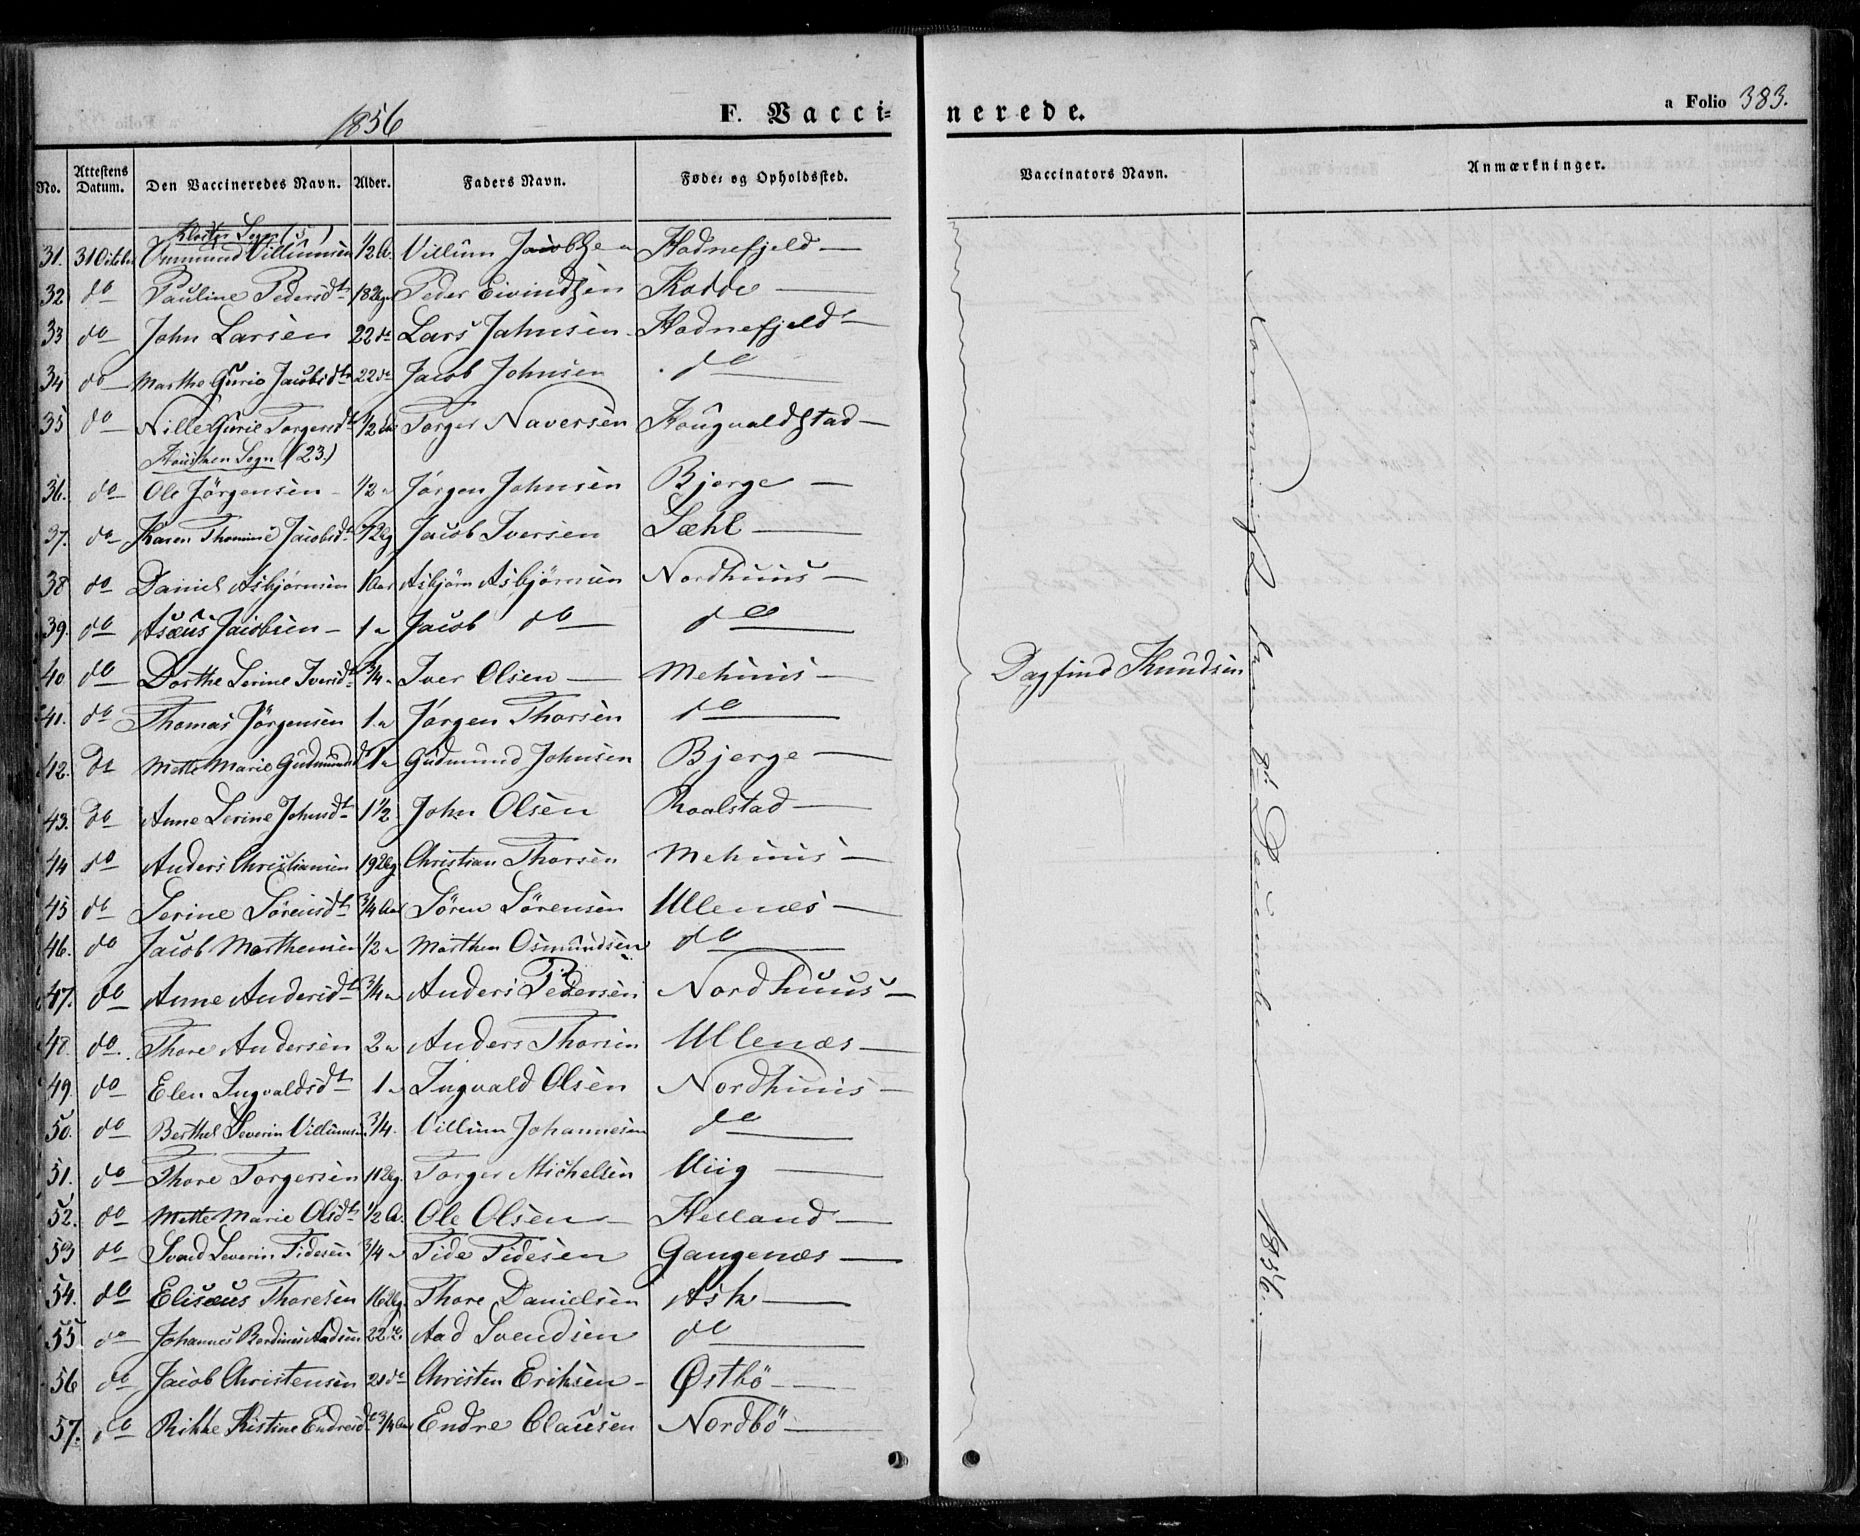 1856 F. Vaccinerede. a Folio 383.
No. Attestens Datum. Den Vaccineredes Navn. Alder. Faders Navn. Føde- og Opholdssted. Vaccinators Navn. Anmærkninger.
Kloster Sogn (5)
31. 31 Octobr Ommund Villumsen 1/2 A. Villum Jacobsen Hodnefjeld
32 do Pauline Pedersdtr 18 Ug. Peder Eivindsen Hodde
33 do John Larsen 22 do Lars Johnsen Hodnefjeld
34 do Marthe Gurie Jacobsdtr 22 do Jacob Johnsen do
35 do Nille Gurie Torgersdtr 1/2 Aar Torger Naversen Hougvaldstad
Houschen Sogn (23.)
36. do Ole Jörgensen 1/2 " Jörgen Johnsen Bjerge
37. do Karen Thomine Jacobsdtr Jacob Iversen Sæhl
38 do Daniel Asbjørnsen 1 Aar Asbjørn Asbjørnsen Nordhuus
39. do Asæus Jacobsen 1 " Jacob do do
40 do Dorthe Serine Iversdtr 3/4 " Iver Olsen Mehuus
41. do Thomas Jörgensen 1 " Jörgen Thorsen do
42. do Mette Marie Gudmundsd 1 " Gudmund Johnsen Bjerge
43. do Anne Serine Johnsdtr 1 1/2 John Olsen Roalstad
44 do Anders Christiansen 19 Ug. Christian Thorsen Mehuus
45 do Serine Sörensdtr 3/4 Aar Sören Sörensen Ullenæs
46. do Jacob Morthensen 1/2 " Morthen Osmundsen do
47. do Anne Andersdtr 3/4 " Anders Pedersen Nordhuus
48. do Thore Andersen 2 " Anders Thorsen Ullenæs
49. do Elen Ingvaldsdtr 1 " Ingvald Olsen Nordhuus
50. do Berthel Severin Villumsen 3/4. Villum Johannesen do
51. do Thore Torgersen 11 Ug. Torger Michelsen Viig
52. do Mette Marie Olsdtr 1/2 A. Ole Olsen Helland
53 do Svend Severin Tidesen 3/4 " Tide Tidesen Gangenæs
54. do Elisæus Thoresen 16 Ug. Thore Danielsen Ask
55 do Johannes Bordinus Aadsen 22 do Aad Svendsen do
56 do Jacob Christensen 21 do Christen Eriksen Østbö
57. do Rikke Kistine Endresdtr 3/4 Aar Endre Clausen Nordbö
Dagfind Knudsen
8de December 1856.